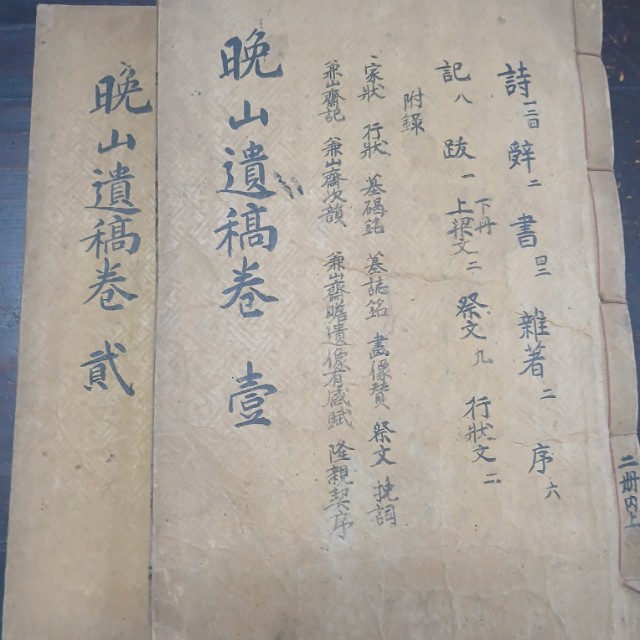 詩 三百 辭 二 書 四三 雜著 二 序 六
記 八 跋 一 上樑文 二 祭文 九 行狀文 二
下冊
附錄
家狀 行狀 墓碣銘 墓誌銘 畫像贊 祭文 挽詞
兼山齋記 兼山齋次韻 兼齋瞻遺像有感賦 隆親契序
晚山遺稿卷 壹
晚山遺稿卷 貳
二冊內